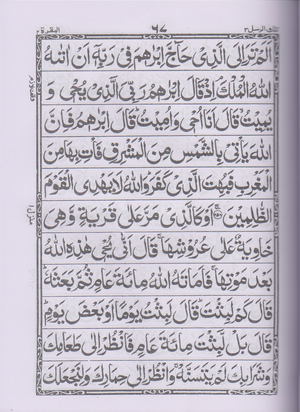 تلك الرسل ٣ ٦٧ البقرة ٢
اَلَمْ تَرَ اِلَى الَّذِىْ حَآجَّ اِبْرٰهٖمَ فِىْ رَبِّهٖٓ اَنْ اٰتٰىهُ
اللّٰهُ الْمُلْكَ اِذْ قَالَ اِبْرٰهٖمُ رَبِّىَ الَّذِىْ يُحْيٖ وَ
يُمِيْتُ قَالَ اَنَا اُحْيٖ وَاُمِيْتُ قَالَ اِبْرٰهٖمُ فَاِنَّ
اللّٰهَ يَاْتِىْ بِالشَّمْسِ مِنَ الْمَشْرِقِ فَاْتِ بِهَا مِنَ
الْمَغْرِبِ فَبُهِتَ الَّذِىْ كَفَرَ وَاللّٰهُ لَا يَهْدِى الْقَوْمَ
الظّٰلِمِيْنَ اَوْ كَالَّذِىْ مَرَّ عَلٰى قَرْيَةٍ وَّهِىَ
خَاوِيَةٌ عَلٰى عُرُوْشِهَا قَالَ اَنّٰى يُحْيٖ هٰذِهِ اللّٰهُ
بَعْدَ مَوْتِهَا فَاَمَاتَهُ اللّٰهُ مِائَةَ عَامٍ ثُمَّ بَعَثَهٗ
قَالَ كَمْ لَبِثْتَ قَالَ لَبِثْتُ يَوْمًا اَوْ بَعْضَ يَوْمٍ
قَالَ بَلْ لَّبِثْتَ مِائَةَ عَامٍ فَانْظُرْ اِلٰى طَعَامِكَ
وَشَرَابِكَ لَمْ يَتَسَنَّهْ وَانْظُرْ اِلٰى حِمَارِكَ وَلِنَجْعَلَكَ